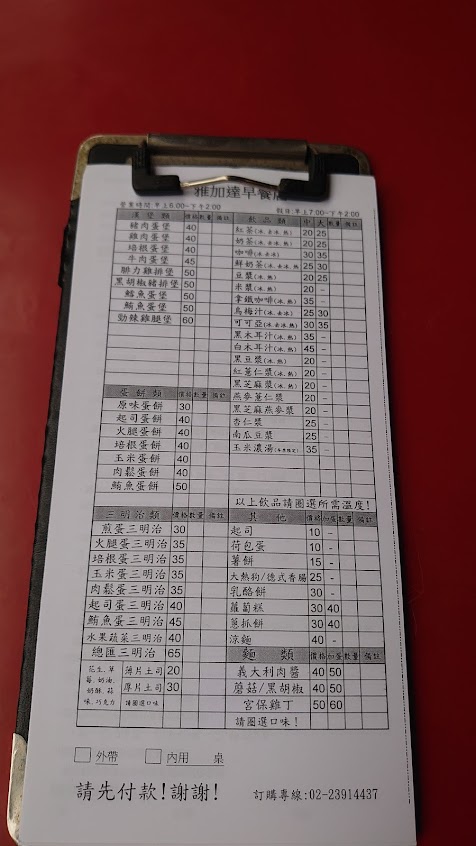 雅加達早餐店
營業時間 早上6:00~下午2:00 假日 早上7:00~下午2:00
漢堡類 價格 數量 備註
豬肉蛋堡 40
雞肉蛋堡 40
培根蛋堡 40
牛肉蛋堡 45
腓力雞排堡 50
黑胡椒豬排堡 50
鱈魚蛋堡 50
鮪魚蛋堡 50
勁辣雞腿堡 60
蛋餅類 價格 數量 備註
原味蛋餅 30
起司蛋餅 40
火腿蛋餅 40
培根蛋餅 40
玉米蛋餅 40
肉鬆蛋餅 40
鮪魚蛋餅 50
三明治類 價格 數量 備註
煎蛋三明治 30
火腿蛋三明治 35
培根蛋三明治 35
玉米蛋三明治 35
肉鬆蛋三明治 35
起司蛋三明治 40
鮪魚蛋三明治 45
水果蔬菜三明治 40
總匯三明治 65
花生.草莓.奶油.奶酥.蒜味.巧克力
薄片土司 20
厚片土司 30
請圈選口味
飲品類 中 大 數量 備註
紅茶(冰.去冰.熱) 20 25
奶茶(冰.去冰.熱) 20 25
咖啡(冰.去冰) 30 35
鮮奶茶(冰.去冰.熱) 25 30
豆漿(冰.熱) 20 25
米漿(冰.熱) 20 -
拿鐵咖啡(冰.熱) 35 -
烏梅汁(冰.去冰) 25 30
可可亞(冰.去冰.熱) 30 35
黑木耳汁(冰.熱) 35 -
白木耳汁(冰.熱) 45 -
黑豆漿(冰.熱) 20 -
紅薏仁漿(冰.熱) 20 -
黑芝麻漿(冰.熱) 20 -
燕麥薏仁漿 20 -
黑芝麻燕麥漿 20 -
杏仁漿 25 -
南瓜豆漿 25 -
玉米濃湯 35 -
以上飲品請圈選所需溫度!
其他 價格 加蛋 數量 備註
起司 10 -
荷包蛋 10 -
薯餅 15 -
大熱狗/德式香腸 25 -
乳酪餅 30 -
蘿蔔糕 30 40
蔥抓餅 30 40
涼麵 40 -
麵類 價格 加蛋 數量 備註
義大利肉醬 40 50
蘑菇/黑胡椒 40 50
宮保雞丁 50 60
請圈選口味!
外帶 內用 桌
請先付款!謝謝! 訂購專線:02-23914437